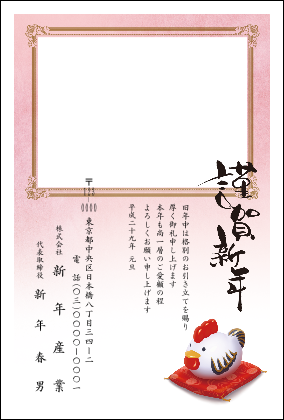 謹賀新年
旧年中は格別のお引き立てを賜り
厚く御礼申し上げます
本年も尚一層のご愛顧の程
よろしくお願い申し上げます
平成二十九年 元旦
〒
東京都中央区日本橋八丁目三四ー二
電話(〇三)〇〇〇〇ー〇〇〇一
株式会社 新年産業
代表取締役 新年春男